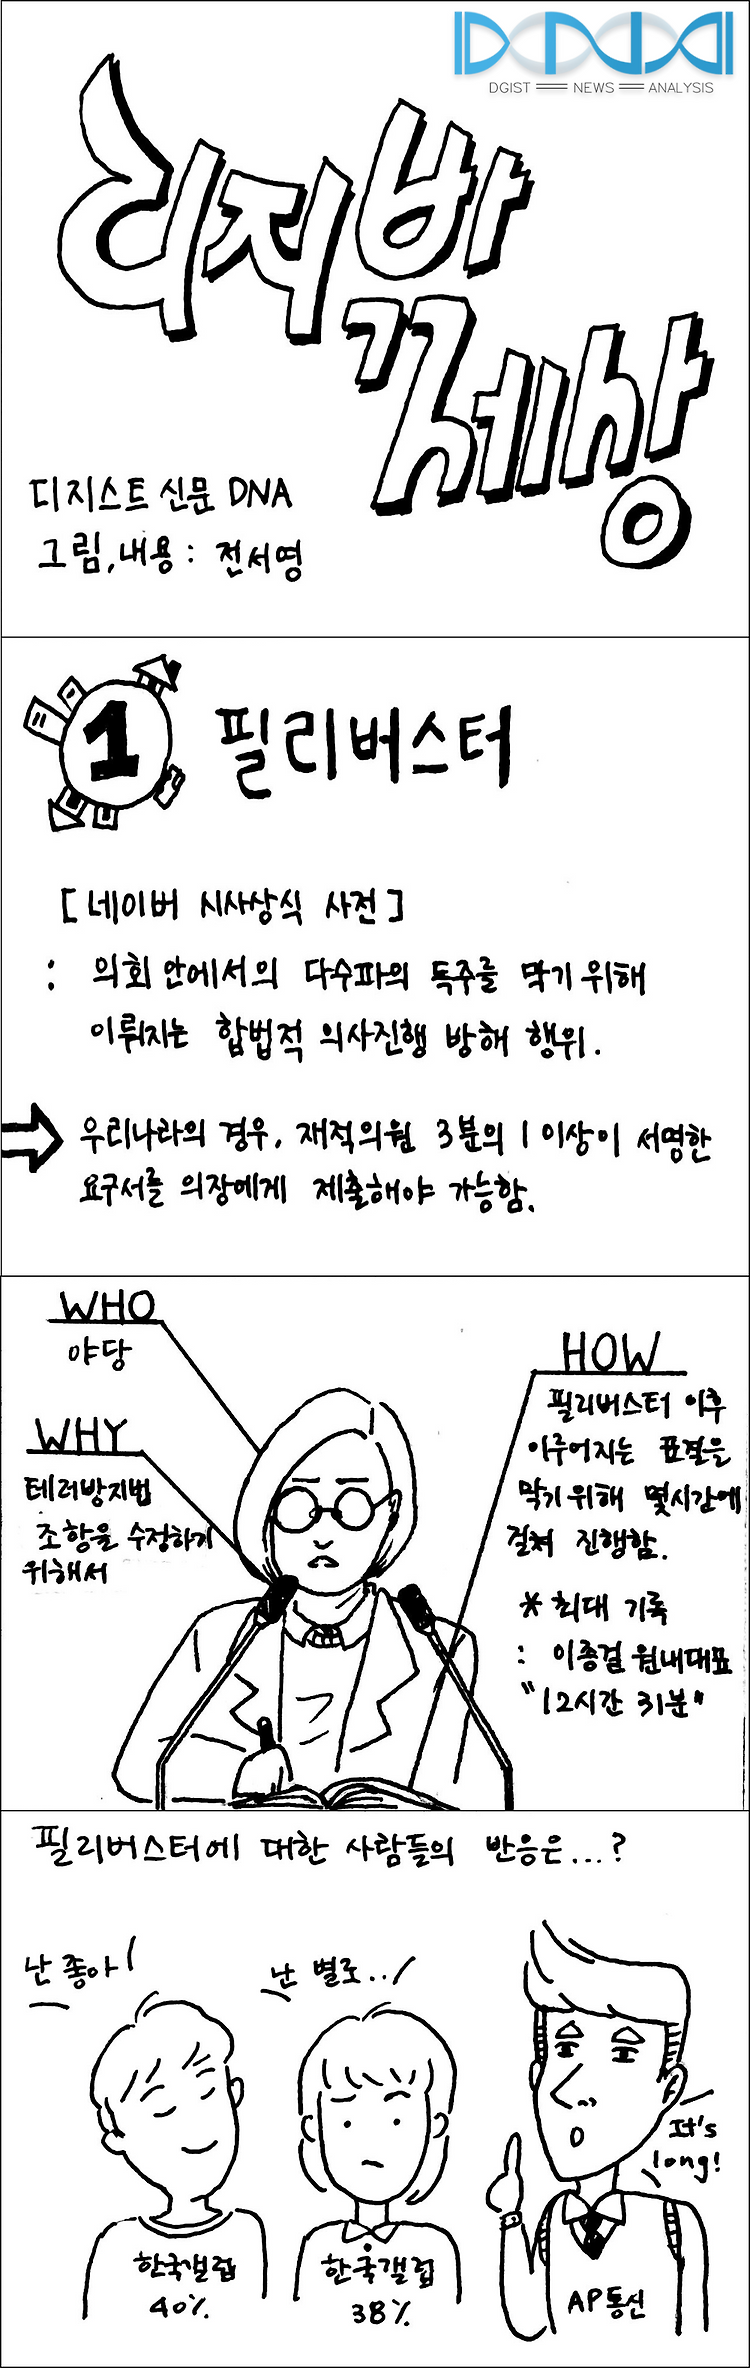 DNA
DGIST NEWS ANALYSIS
디지바
끄세상
디지스트 신문 DNA
그림, 내용 : 전서영
1 필리버스터
[네이버 시사상식 사전]
: 의회 안에서의 다수파의 독주를 막기 위해
이뤄지는 합법적 의사진행 방해 행위.
우리나라의 경우, 재적의원 3분의 1 이상이 서명한
요구서를 의장에게 제출해야 가능함.
WHO
야당
WHY
테러방지법
조항을 수정하기
위해서
HOW
필리버스터 이후
이루어지는 표결을
막기 위해 몇시간에
걸쳐 진행함.
* 최대 기록
: 이종걸 원내대표
"12시간 31분"
필리버스터에 대한 사람들의 반응은...?
난 좋아!
난 별로..
It's
long!
한국갤럽
40%
한국갤럽
38%
AP통신